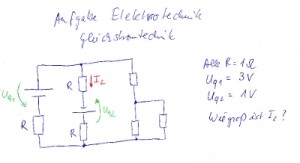 Aufgabe Elektrotechnik
Gleichstromtechnik
Alle R = 1Ω
Uq1 = 3V
Uq2 = 1V
Wie groß ist I2?
Uq1
R
R
I2
Uq2
R